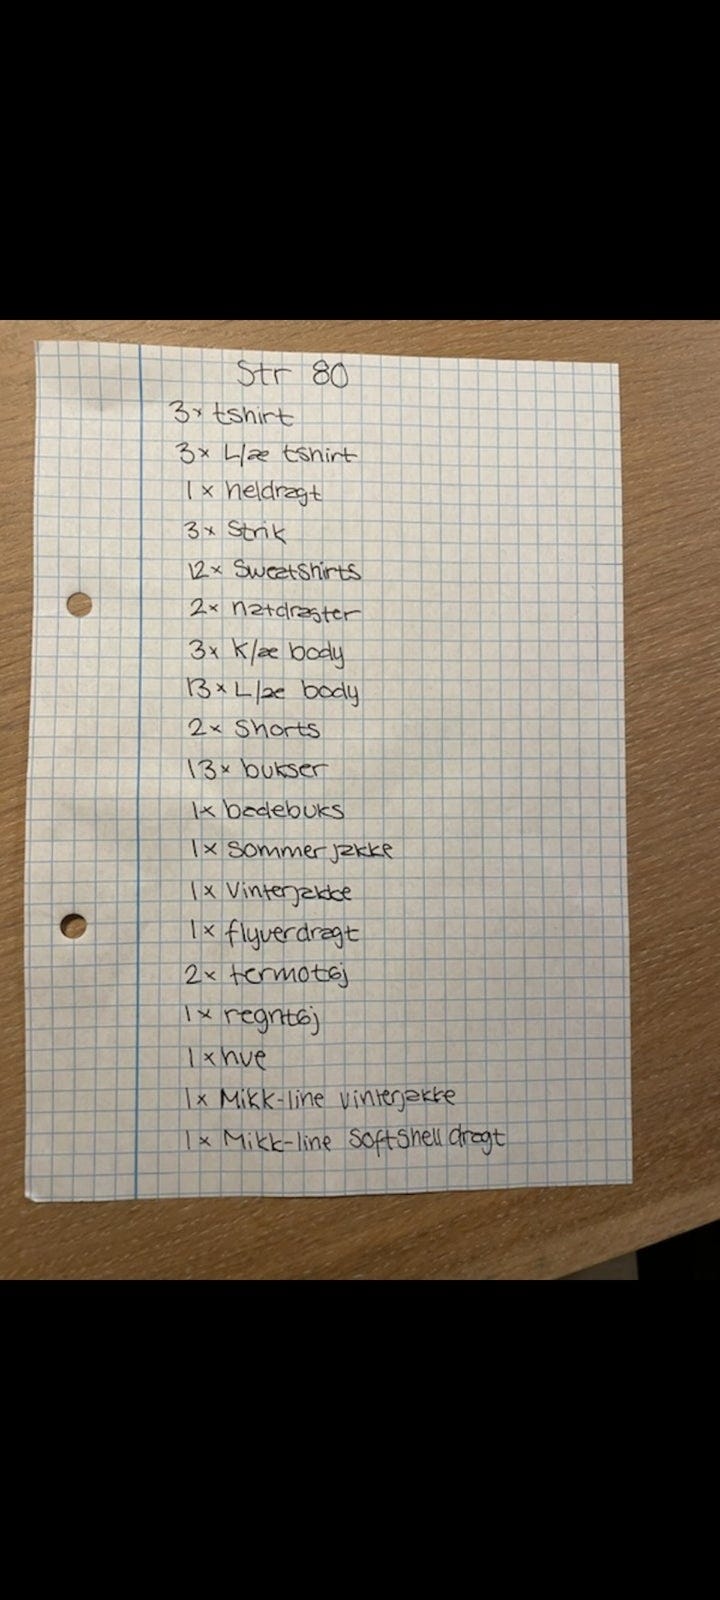 Str 80
3x tshirt
3x L/æ tshirt
1x heldragt
3x Strik
12x Sweatshirts
2x natdragter
3x K/æ body
13x L/æ body
2x Shorts
13x bukser
1x badebuks
1x Sommerjakke
1x Vinterjakke
1x flyverdragt
2x termotøj
1x regntøj
1x hue
1x Mikk-line vinterjakke
1x Mikk-line Softshell dragt